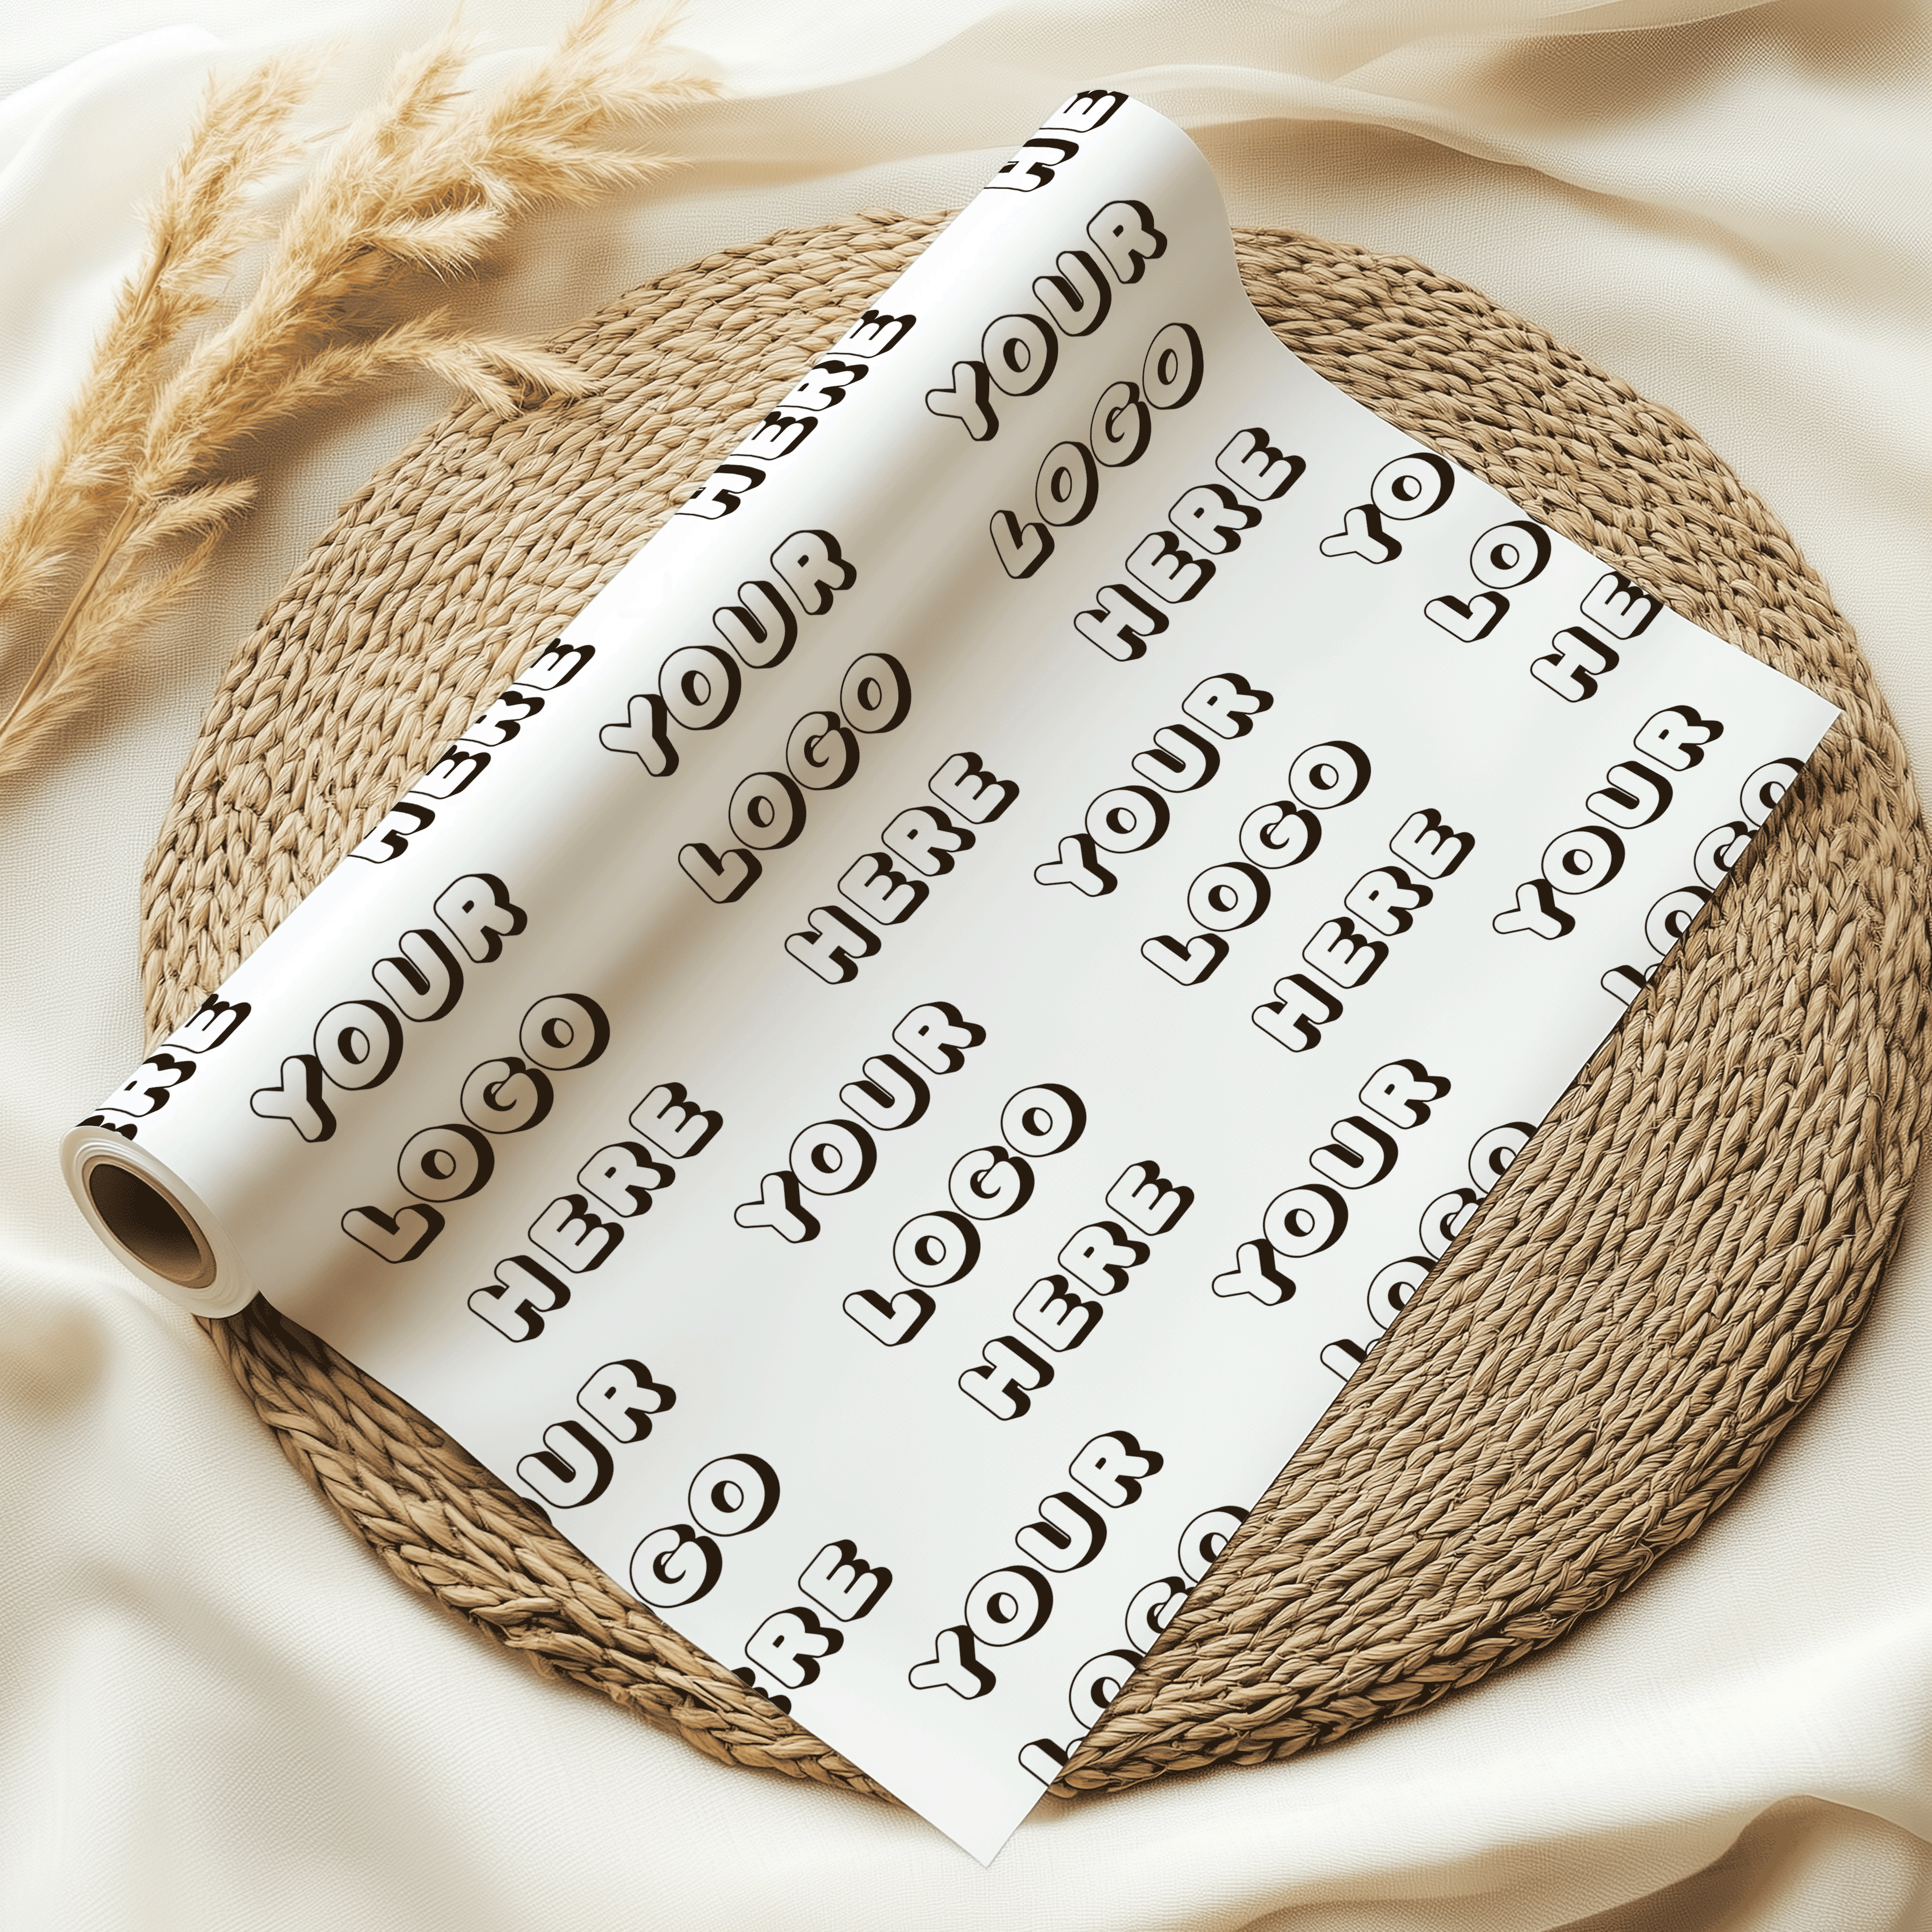 HE
HERE
HERE
ERE
YOUR
LOGO
HERE
YOUR
LOGO
HERE
YOUR
LOGO
HERE
YO
LO
HE
YOUR
LOGO
HERE
YOUR
LOGO
HERE
UR
GO
ERE
YOUR
LOGO
YOUR
LOGO
YOUR
LOGO